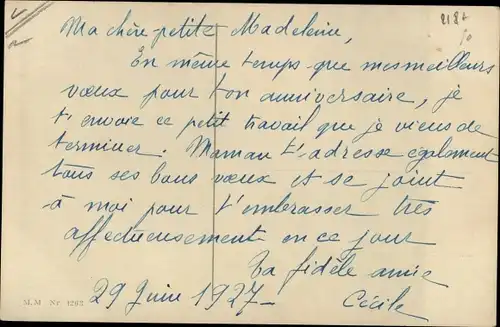 Ma chère petite Madeleine,
En même temps que mes meilleurs
vœux pour ton anniversaire, je
t'envoie ce petit travail que je viens de
terminer. Maman t'adresse également
tous ses bons vœux et se joint
à moi pour t'embrasser très
affectueusement en ce jour
Ta fidèle amie
29 Juin 1927-
Cécile
M.M Nr. 1282